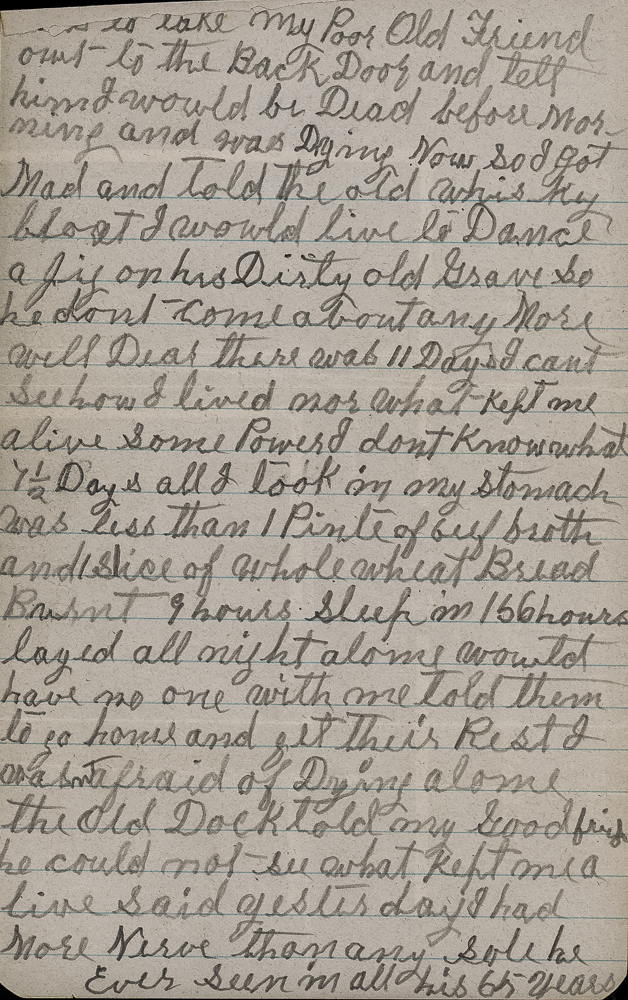 to take My Poor Old Friend
out to the Back Door and tell
him I would be Dead before Mor-
ning and was Dying Now so I got
Mad and told the old whis ky
bloat I would live to Dance
a Jig on his Dirty old Grave so
he dont come about any More
well Dear there was 11 Days I cant
see how I lived nor what kept me
alive some Power I dont Know what
7½ Days all I took in my stomach
was less than 1 Pinte of beef broth
and 1 slice of whole wheat Bread
Burnt 9 hours sleep in 156 hours
layed all night alone would
have no one with me told them
to go home and get their Rest I
wasnt afraid of Dying alone
the Old Dock told my Good
he could not see what kept me a
live said yester day I had
More Nerve than any sole he
Ever seen in all his 65 years